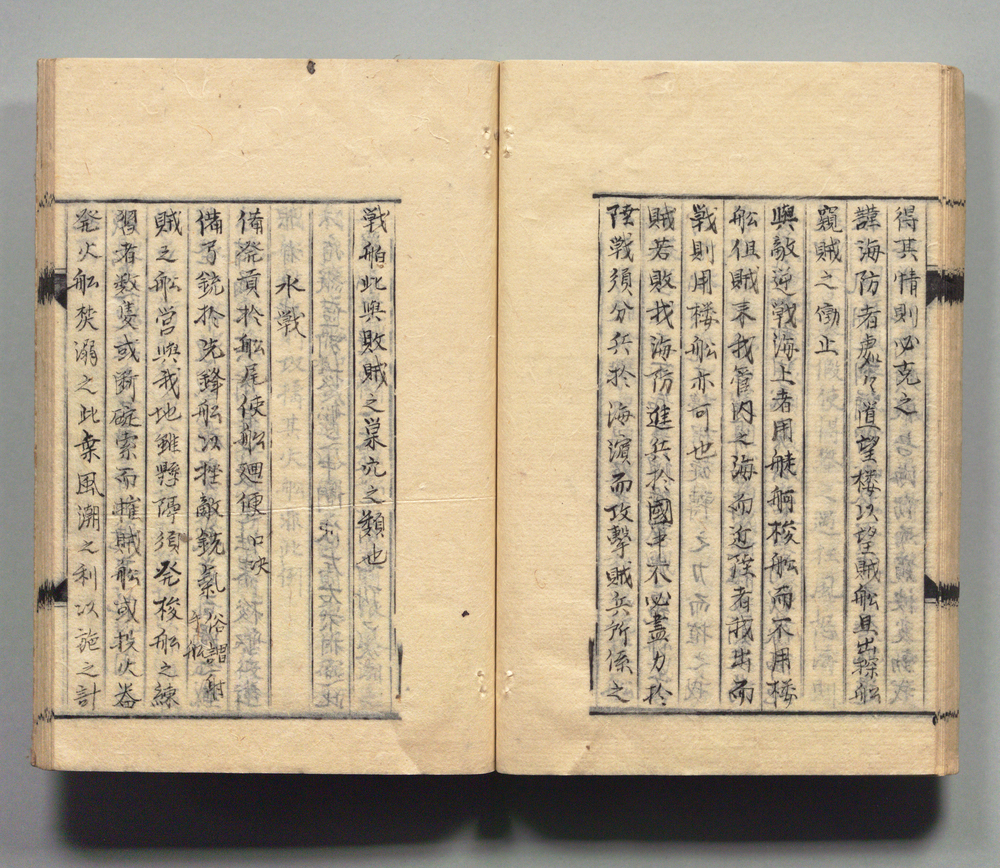 得其情則必克之
諱海防者處々道望楼以望賊船具出探船
窺賊之働止
與敵逆戦海上者用艇舸梭船而不用楼
船但賊来我管内之海而近藻者我出而
戦則用楼船亦可也
賊若敗我海傍進兵於國中衆必盡力於
陸戦須分兵於海濱而攻撃賊兵所係之
戦船此與敗賊之巣穴之類也
水戦
備発貢於船尾使船廻便口决
備弓銃於先鋒船以挫敵銃氣
賊之船営與我地雖懸隔須発梭船之練
者数隻或断碇索而摧賊船或投火器
発火船焚溺之此乗風潮之利以施之計